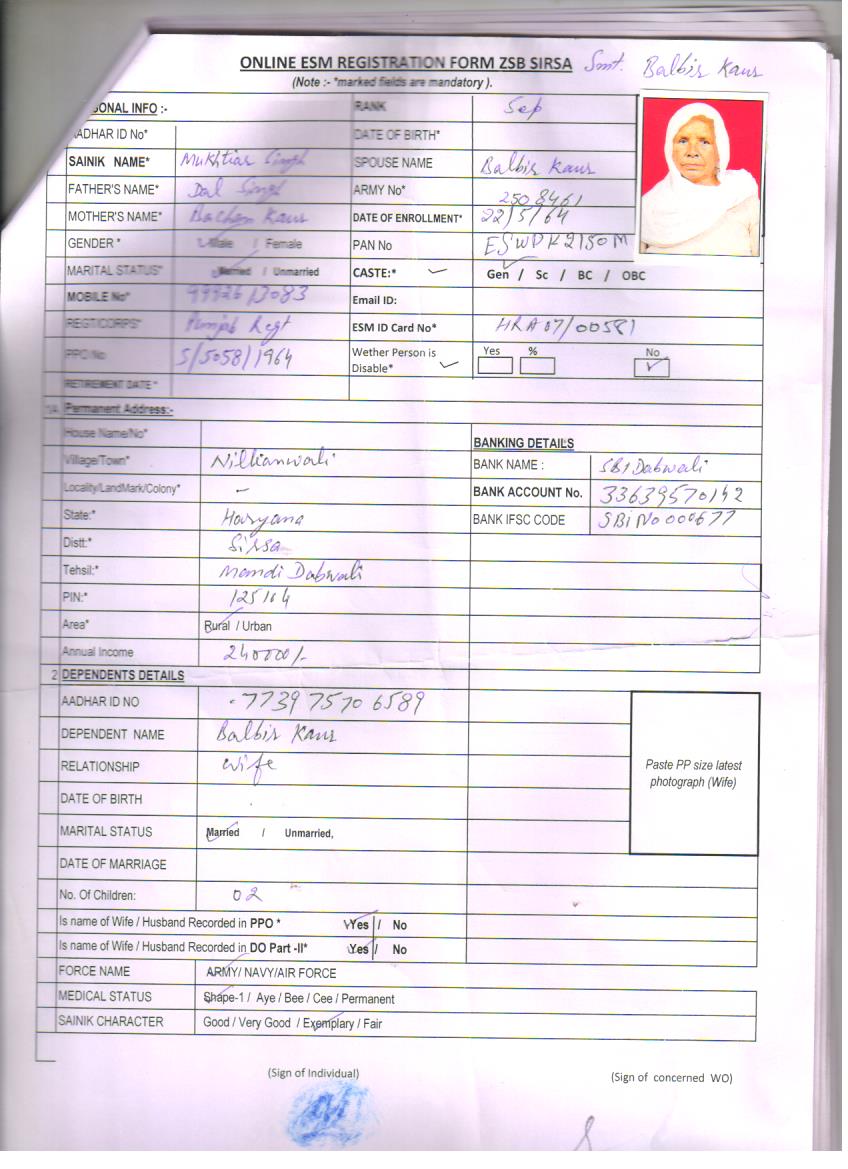 ONLINE ESM REGISTRATION FORM ZSB SIRSA Smt. Balbir Kaur
(Note :- *marked fields are mandatory ).
ONAL INFO :- RANK Sep
AADHAR ID No* DATE OF BIRTH*
SAINIK NAME* Mukhtiar Singh SPOUSE NAME Balbir Kaur
FATHER'S NAME* Dal Singh ARMY No* 2508461
MOTHER'S NAME* Bachan Kaur DATE OF ENROLLMENT* 22/5/64
GENDER * Male / Female PAN No ESWPK2150M
MARITAL STATUS* Married / Unmarried CASTE:* Gen / Sc / BC / OBC
MOBILE No* Email ID:
REGT/CORPS* Punjab Regt ESM ID Card No* HRA07/00581
PPO No S/5058/1964 Wether Person is Disable* Yes % No
RETIREMENT DATE *
1A Permanent Address:-
House Name/No* BANKING DETAILS
Village/Town* Nillianwali BANK NAME : SBI Dabwali
Locality/LandMark/Colony* – BANK ACCOUNT No. 33639570142
State:* Haryana BANK IFSC CODE SBIN0000677
Distt:* Sirsa
Tehsil:* Mandi Dabwali
PIN:* 125104
Area* Rural / Urban
Annual Income 240000/-
2 DEPENDENTS DETAILS
AADHAR ID NO 7739 7570 6589
DEPENDENT NAME Balbir Kaur
RELATIONSHIP wife
Paste PP size latest
photograph (Wife)
DATE OF BIRTH
MARITAL STATUS Married / Unmarried,
DATE OF MARRIAGE
No. Of Children: 02
Is name of Wife / Husband Recorded in PPO * Yes / No
Is name of Wife / Husband Recorded in DO Part -II* Yes / No
FORCE NAME ARMY/ NAVY/AIR FORCE
MEDICAL STATUS Shape-1 / Aye / Bee / Cee / Permanent
SAINIK CHARACTER Good / Very Good / Exemplary / Fair
(Sign of Individual) (Sign of concerned WO)